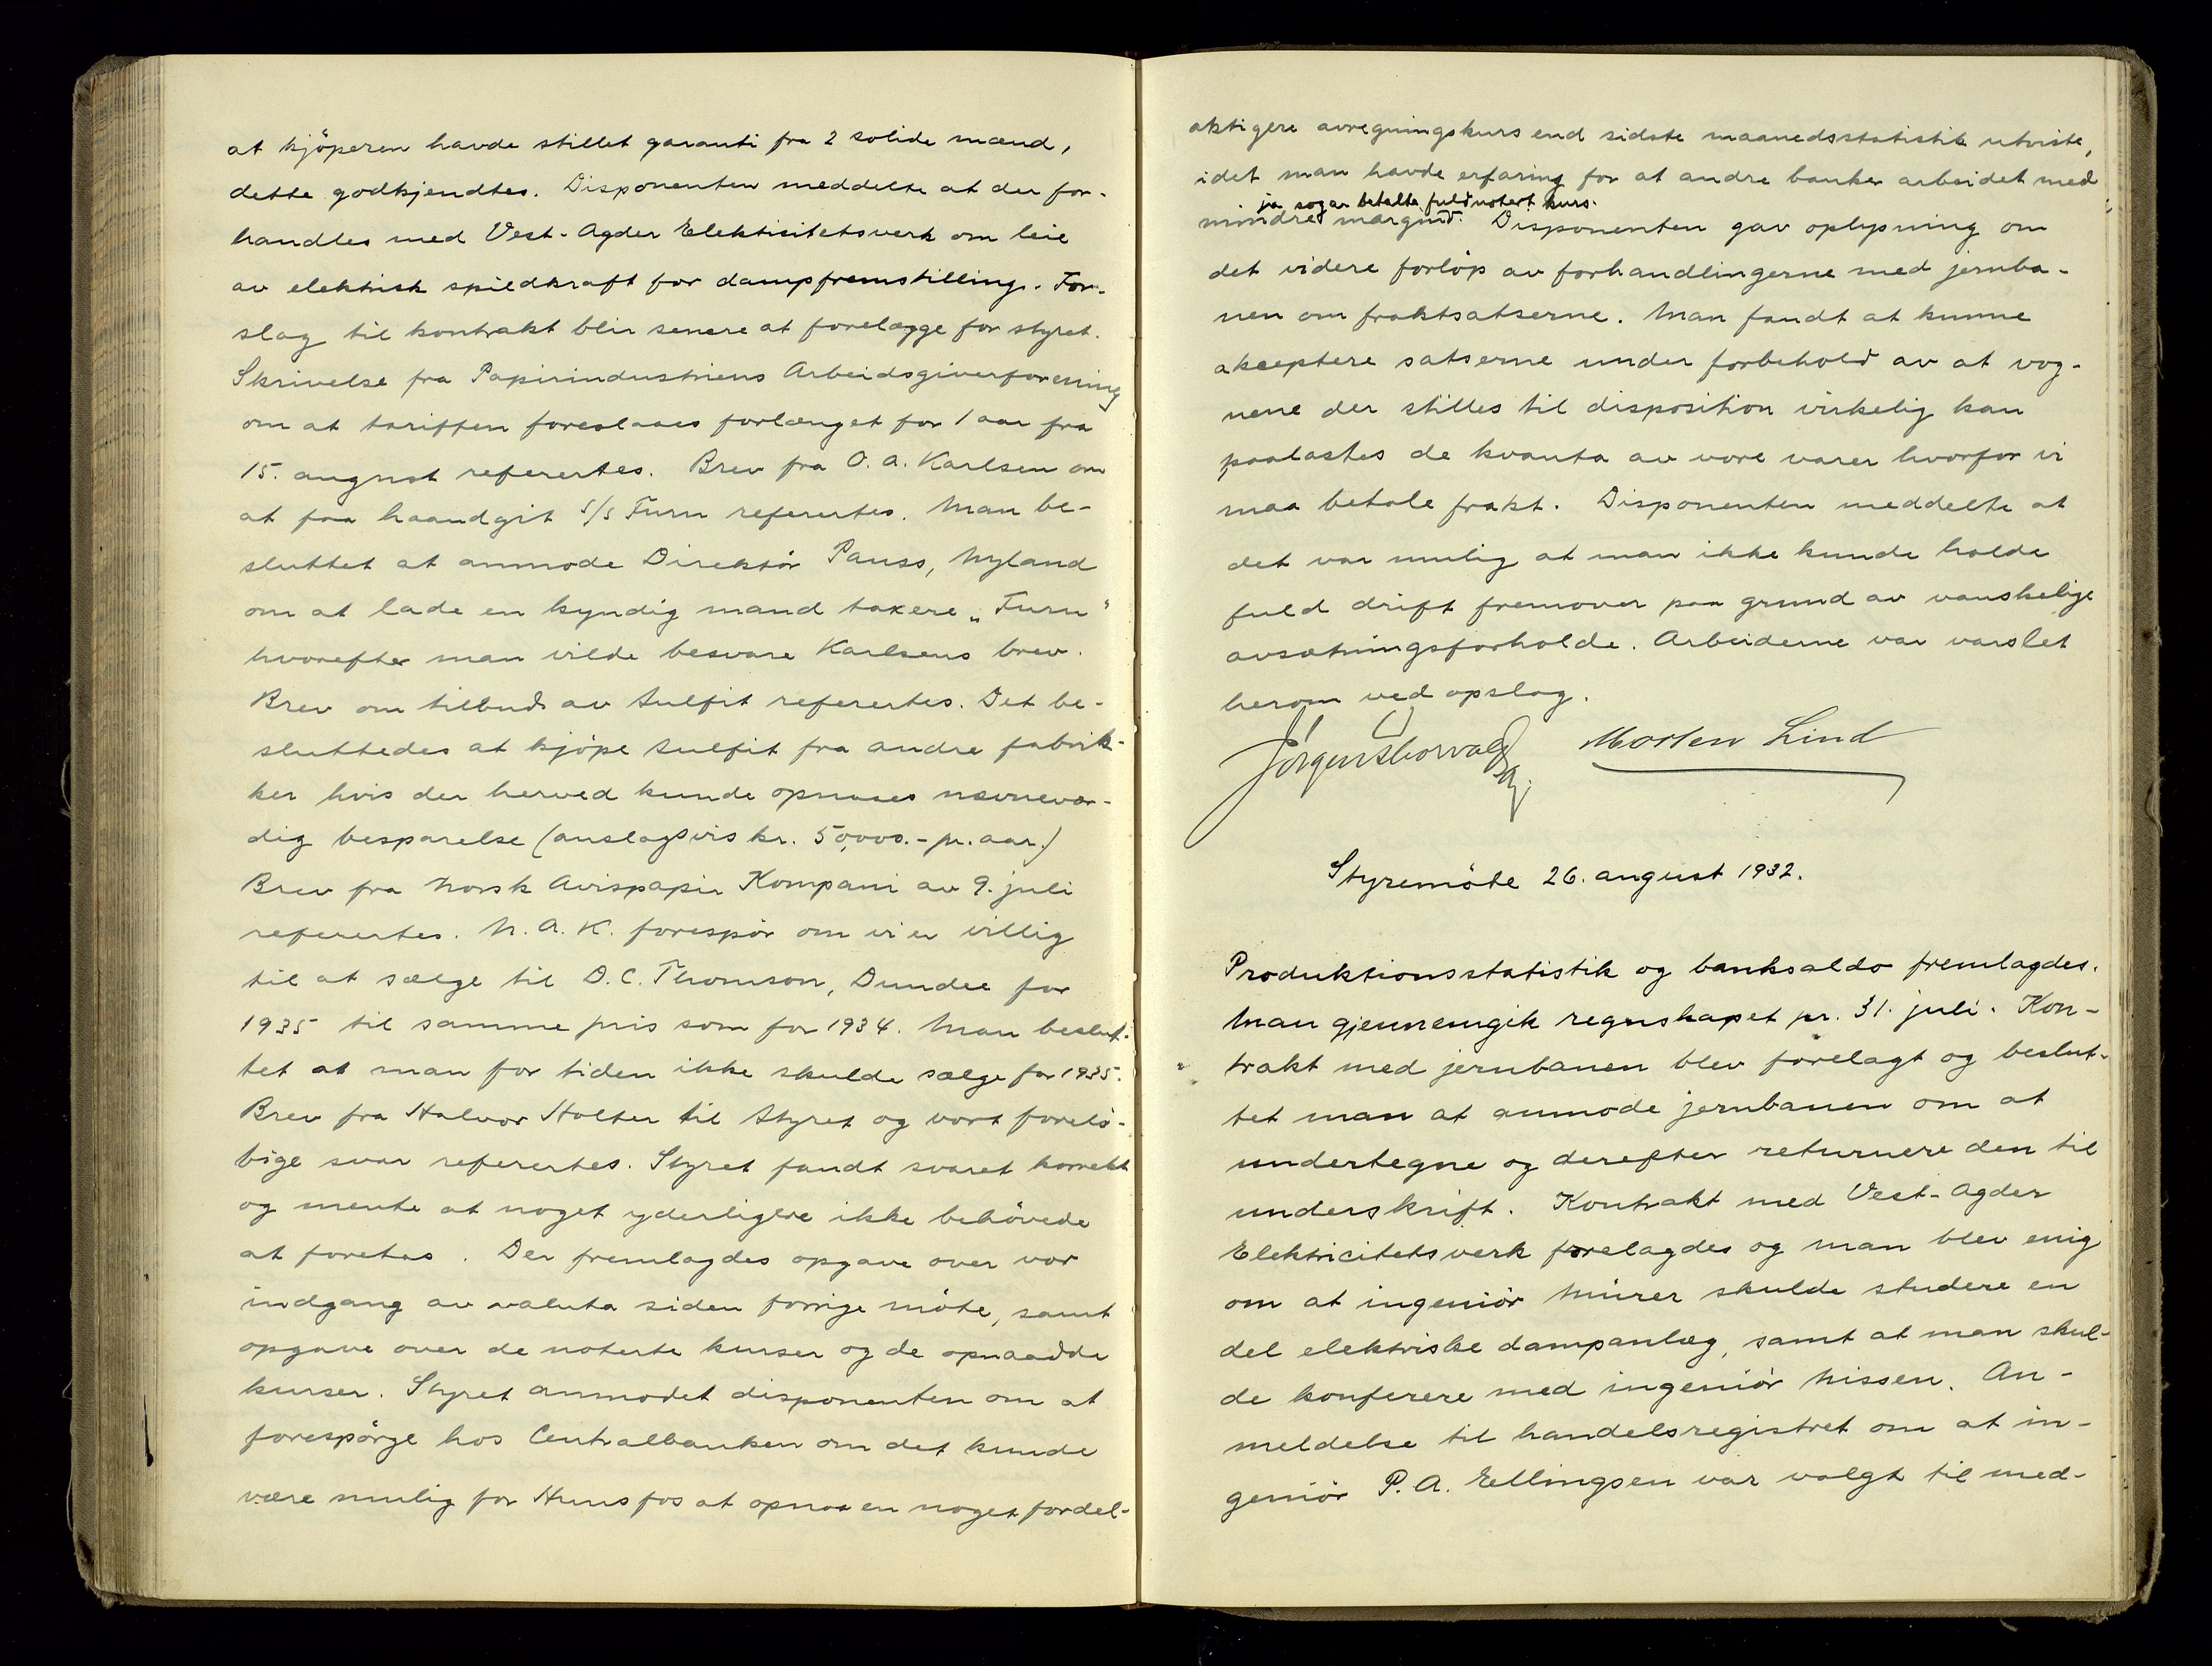 at kjöperen havde stillet garanti fra 2 solide mænd,
dette godkjendtes. Disponenten meddelte at der for-
handles med Vest-Agder Elektricitetsverk om leie
av elektrisk spildkraft for dampfremstilling. For-
slag til kontrakt blir senere at forelægge for styret.
Skrivelse fra Papirindustriens Arbeidsgiverforening
om at tariffen foreslaaes forlænget for 1 aar fra
15. august refertes. Brev fra O. A. Karlsen om
at faa haandgit s/s Furu refertes. Man be-
sluttet at anmode Direktör Pauss, Nyland
om at lade en kyndig mand taxere „Furu"
hvorefter man vilde besvare Karlsens brev.
Brev om tilbud av sulfit refertes. Det be-
sluttedes at kjöpe sulfit fra andre fabrik-
ker hvis der herved kunde opnaaes nævnevær-
dig besparelse (anslagsvis kr. 50,000.- pr. aar.)
Brev fra Norsk Avispapir Kompani av 9. juli
refertes. N. A. K. forespör om vi er villig
til at sælge til D. C. Thomson, Dundee for
1935 til samme pris som for 1934. Man beslut-
tet at man for tiden ikke skulde sælge for 1935.
Brev fra Halvor Holter til Styret og vort forelö-
bige svar refertes. Styret fandt svaret korrekt
og mente at noget yderligere ikke behövede
at foretas. Der fremlagdes opgave over vor
indgang av valuta siden forrige möte, samt
opgave over de noterte kurser og de opnaadde
kurser. Styret anmodet disponenten om at
forespörge hos Centralbanken om det kunde
være mulig for Hunsfos at opnaa en noget fordel-
aktigere avregningskurs end sidste maanedsstatistik utviste,
idet man havde erfaring for at andre banker arbeidet med
ja sogar betalte fuld notert kurs.
mindre margin. Disponenten gav oplysning om
det videre forlöp av forhandlingerne med jernba-
nen om fraktsatserne. Man fandt at kunne
akceptere satserne under forbehold av at vog-
nene der stilles til disposition virkelig kan
paalastes de kvanta av vore varer hvorfor vi
maa betale frakt. Disponenten meddelte at
det var mulig at man ikke kunde holde
fuld drift fremover paa grund av vanskelige
avsætningsforholde. Arbeiderne var varslet
herom ved opslag.
Morten Lind
Styremöte 26. august 1932.
Produktionsstatistik og banksaldo fremlagdes.
Man gjennemgik regnskapet pr. 31. juli. Kon-
trakt med jernbanen blev forelagt og beslut-
tet man at anmode jernbanen om at
undertegne og derefter returnere den til
underskrift. Kontrakt med Vest-Agder
Elektricitetsverk forelagdes og man blev enig
om at ingeniör Mürer skulde studere en
del elektriske dampanlæg, samt at man skul-
de konferere med ingeniör Nissen. An-
meldelse til handelsregistret om at in-
geniör P. A. Ellingsen var valgt til med-